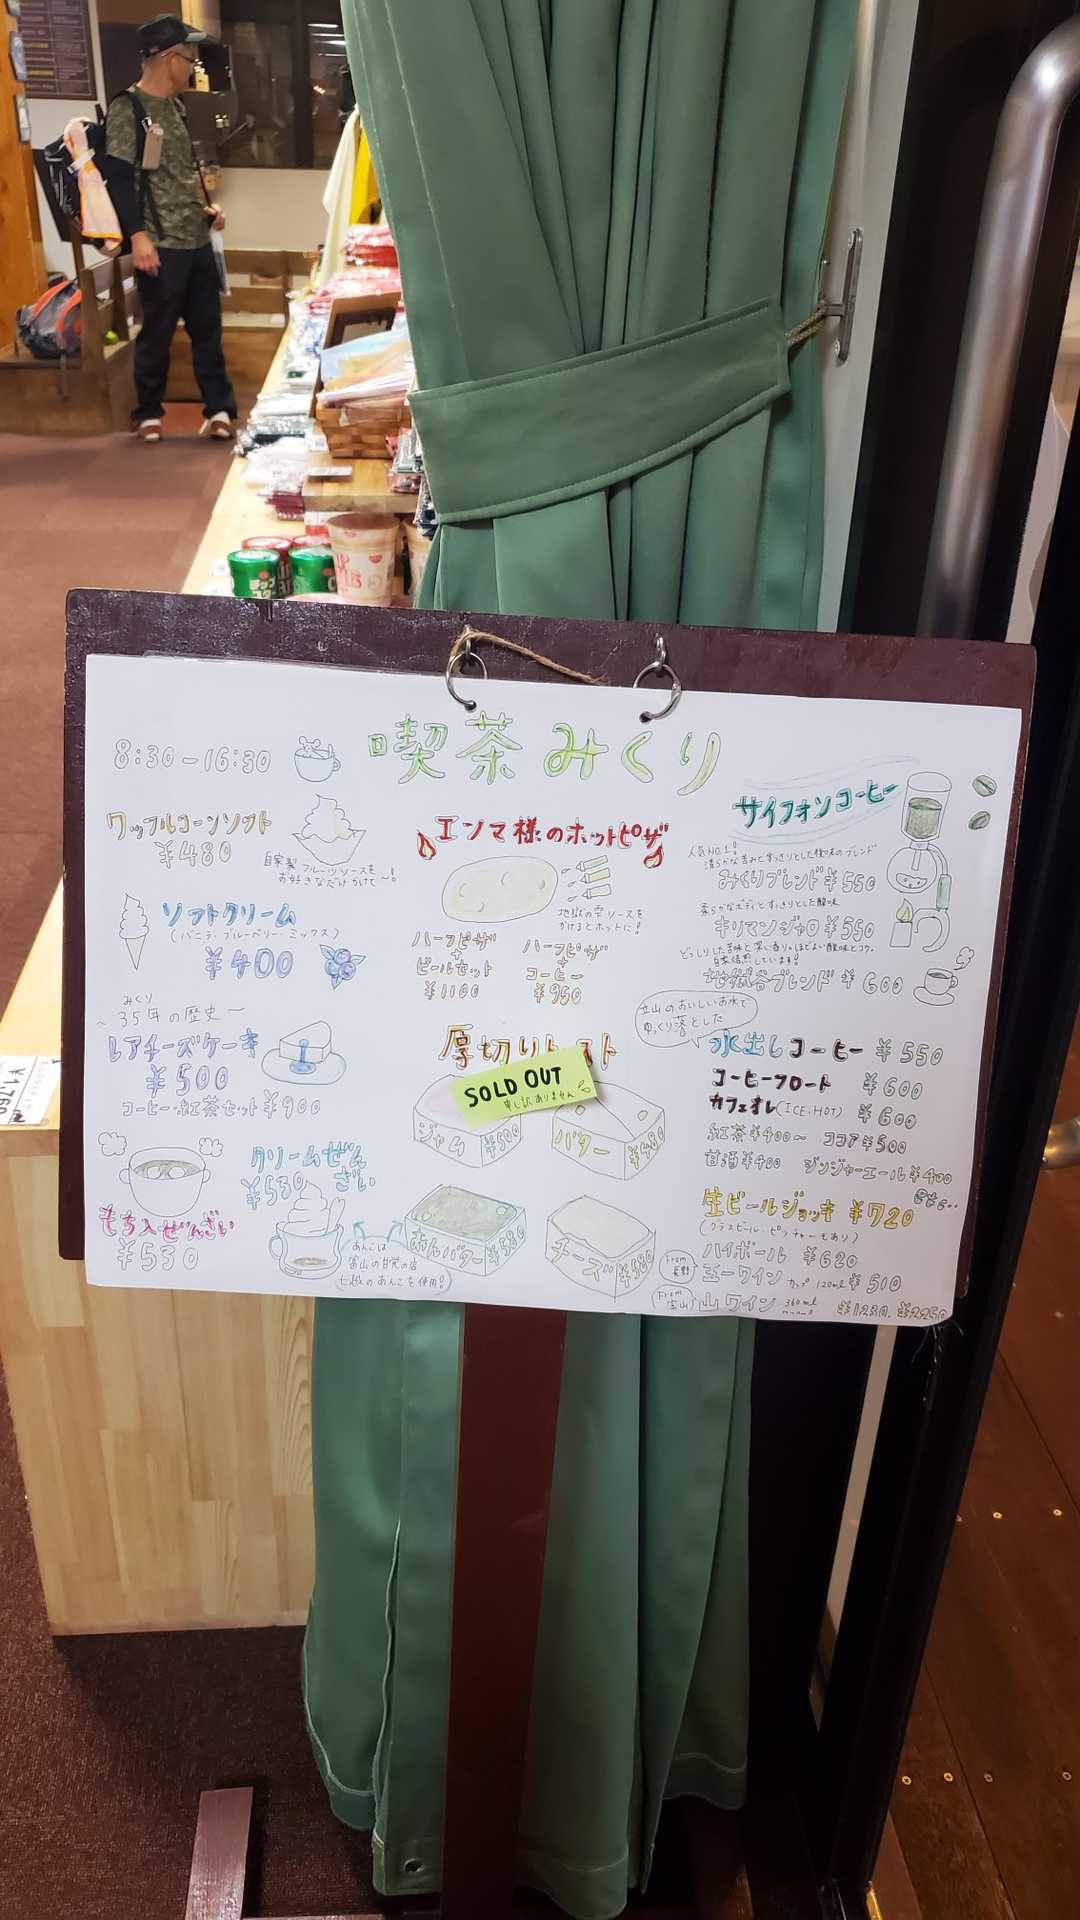 8:30-16:30
喫茶 みくり
ワッフルコーンソフト
¥480
自家製 フルーツソースを
お好きなだけかけて〜!
ソフトクリーム
(バニラ・ブルーベリー・ミックス)
¥400
みくり
〜35年の歴史〜
レアチーズケーキ
¥500
コーヒー・紅茶セット ¥900
クリームぜんざい
¥530
もち入ぜんざい
¥530
あんこは
富山の甘党の店
七越のあんこを使用!
エンマ様のホットピザ
地獄の雫ソースを
かけるとホットに!
ハーフピザ
+
ビールセット
¥1100
ハーフピザ
+
コーヒー
¥950
厚切りトースト
SOLD OUT
申し訳ありません
ジャム ¥500
バター ¥480
あんバター ¥580
チーズ ¥580
サイフォンコーヒー
人気NO.1!
清らかな苦みとすっきりとした後味のブレンド
みくりブレンド ¥550
柔らかなボディとすっきりとした酸味
キリマンジャロ ¥550
どっしりした苦味と深い香り。ほどよい酸味とコク。
自家焙煎しています!
地獄谷ブレンド ¥600
立山のおいしいお水で
ゆっくり落とした
水出しコーヒー ¥550
コーヒーフロート ¥600
カフェオレ(ICE・HOT) ¥600
紅茶 ¥400〜 ココア ¥500
甘酒 ¥400 ジンジャーエール ¥400
生ビールジョッキ ¥720
(グラスビール・ピッチャーもあり)
ハイボール ¥620
From 長野
五一ワイン カップ 120ml ¥510
From 富山
山ワイン 360ml
¥1230. ¥2250
¥1,760